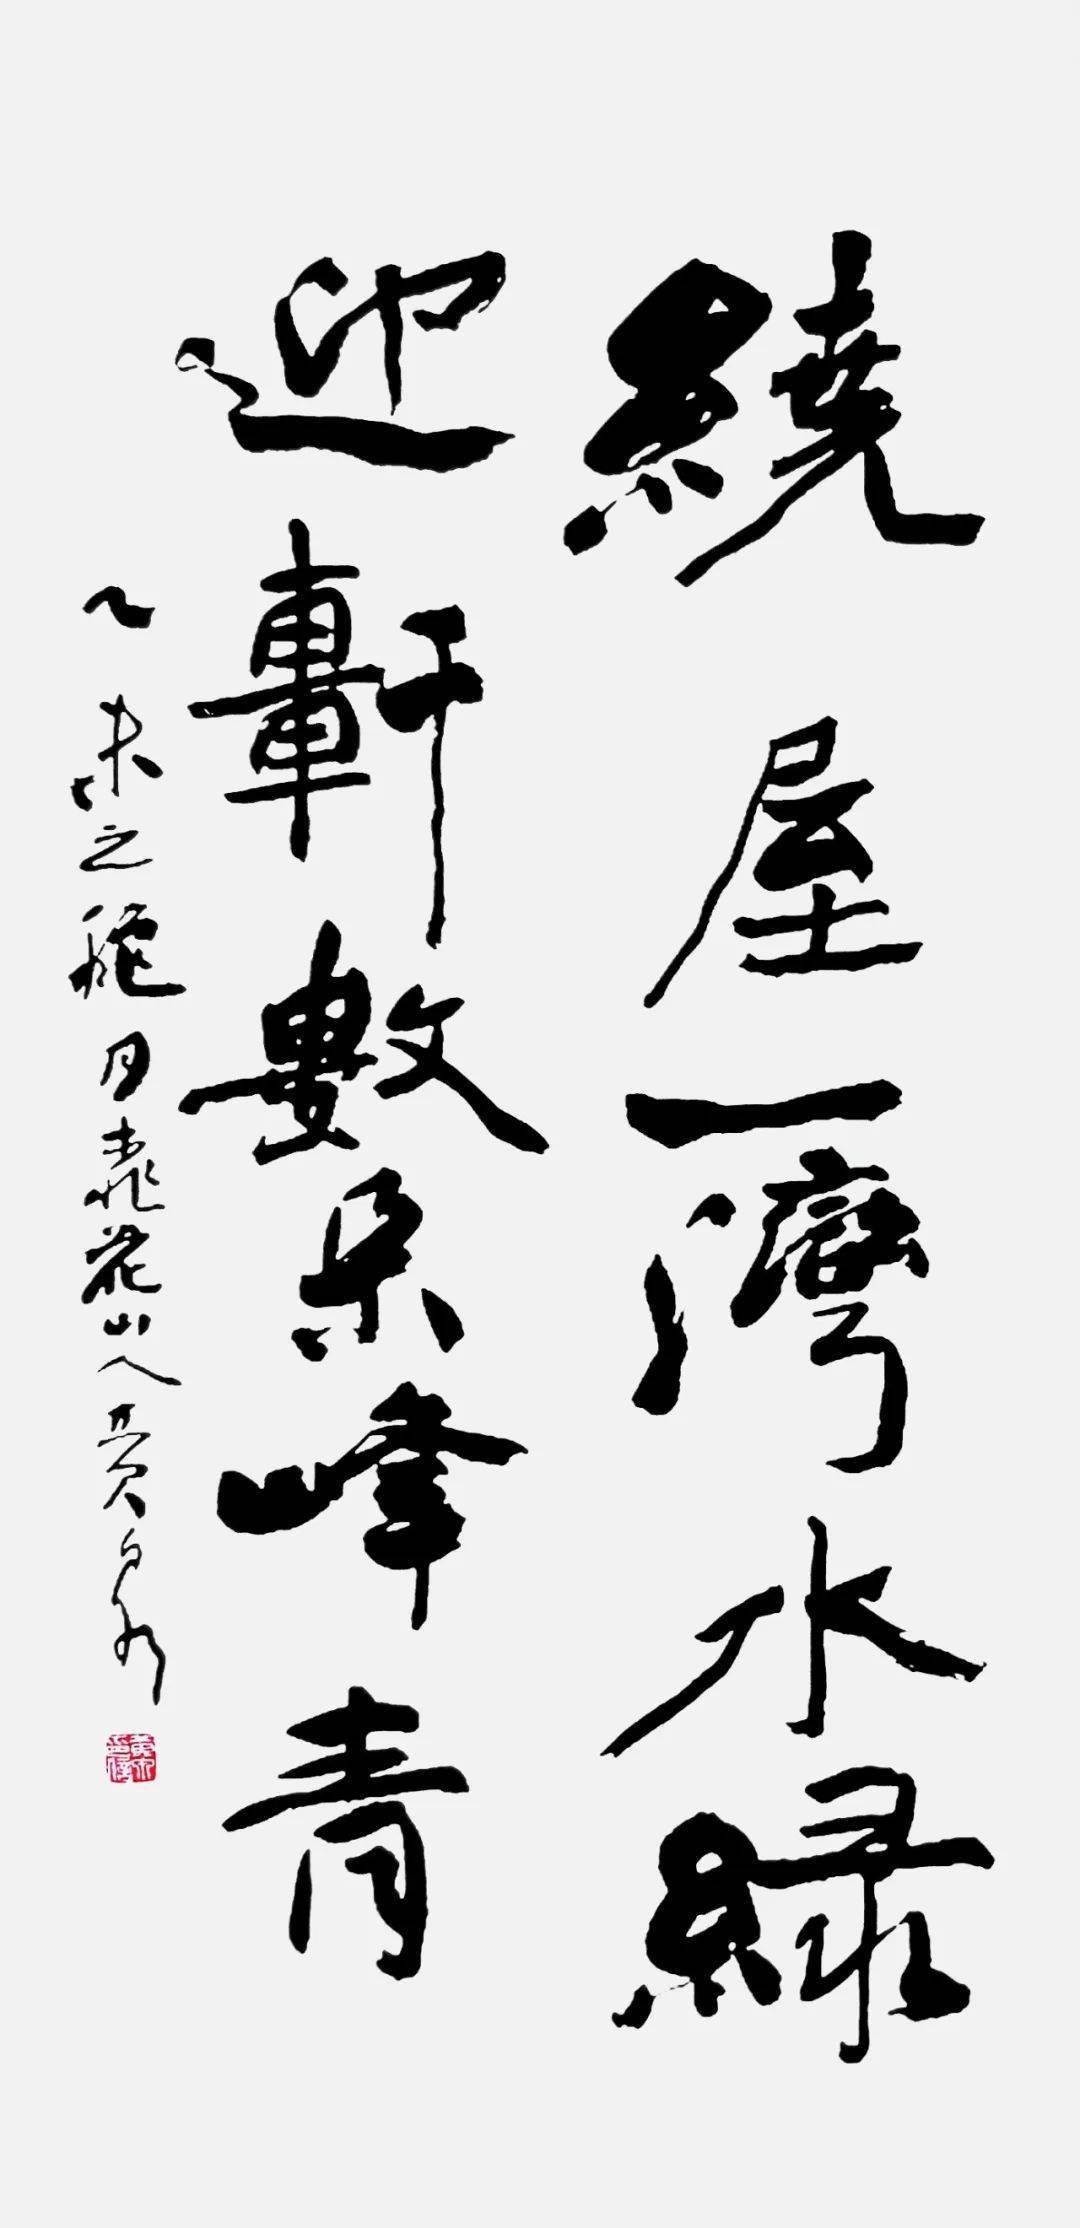 繞屋一灣水綠
迎軒數朵峰青
乙未之秋月桃花山人黃泉